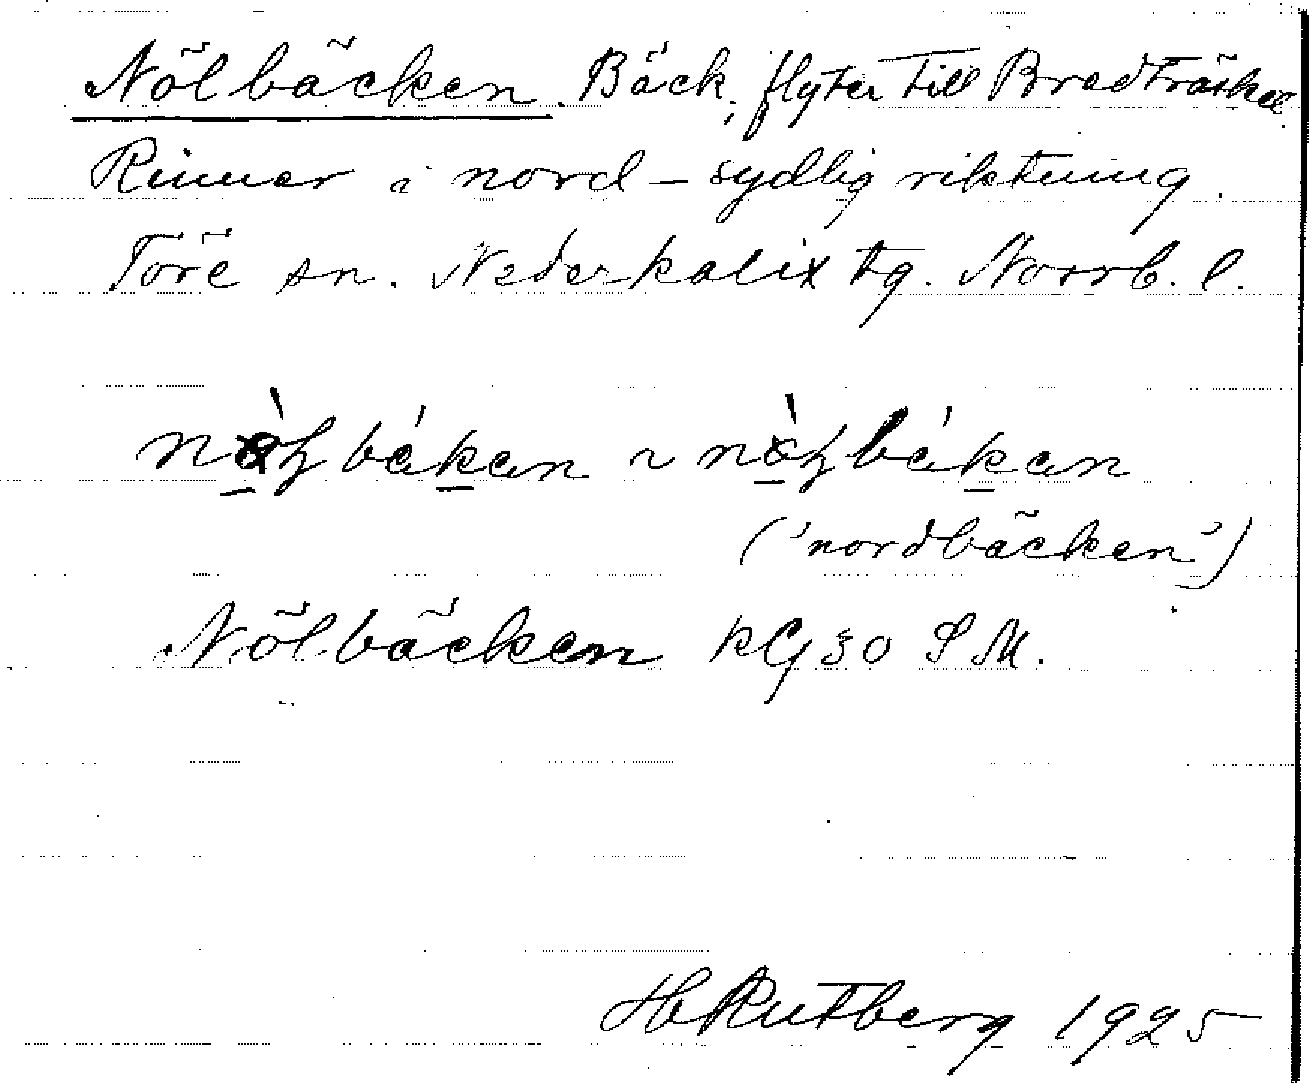 Nölbäcken. Bäck, flyter till Bredträsket.
Rinner i nord-sydlig riktning.
Töre sn. Nederkalix tg. Norrb. l.
('nordbäcken')
Nölbäcken KG30 SM.
H Rutberg 1925